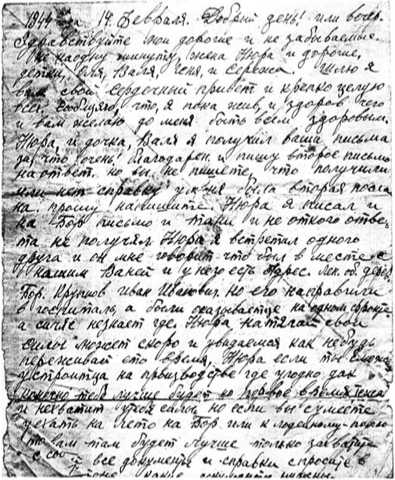 1944 19 Февраля. Добрый день! или вечер
Здравствуйте мои дорогие и не забываемые
на одну минуту, жена Нюра и дорогие,
детки, Валя, Женя, и Сережа. шлю я
вам свой сердечный привет и крепко целую
всех сообщаю, что, я пока жив, и здоров чего
и вам желаю до меня быть всем здоровым.
Нюра и дочка, Валя я получил ваши письма
за, что очень! благодарен. и пишу второе письмо
на ответ. но вы не пишете, что получили
или нет справку у меня была вторая посла
на. прошу! напишите. Нюра я писал и
на Бор письмо и Тани и не откого отве
та не получил Нюра я встретил одного
друга и он мне говорит что был в месте с
нашим Ваней и у него есть адрес. Лен. об. дерев
Бор. Круглов Иван Иванович. Но его направили
в госпиталь, а были оказывается на одном фронте
а сичас незнает где. Нюра, напрягай свои
силы может скоро и увидаемся как нибудь
переживай ето время, Нюра если ты сможеш
устроитца на производстве где угодно дак
конечно тебе лучше будет но первое время тяжело
и нехватит у тебя силы, но если вы сумеете
уехать на лето на Бор или к
то вам там будет лучше только захватите
с собой все документы и справки спросите в
какие документы нужны.